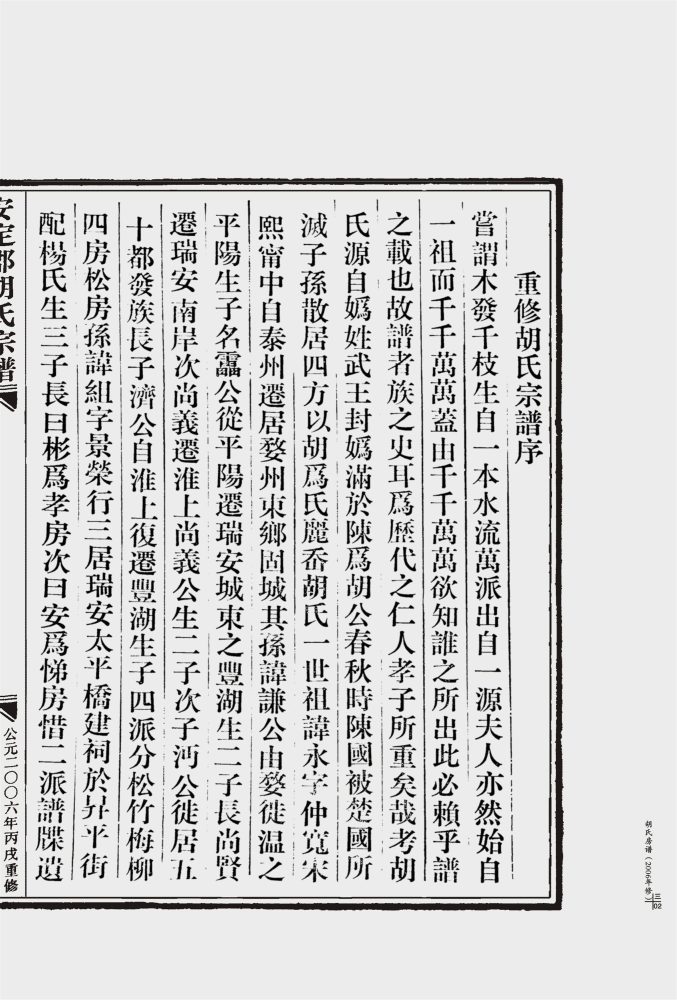 重修胡氏宗譜序
嘗謂木發千枝生自一本水流萬派出自一源夫人亦然始自
一祖而千千萬萬蓋由千千萬萬欲知誰之所出此必賴乎譜
之載也故譜者族之史耳爲歷代之仁人孝子所重矣哉考胡
氏源自嬀姓武王封嬀滿於陳爲胡公春秋時陳國被楚國所
滅子孫散居四方以胡爲氏麗岙胡氏一世祖諱永字仲寬宋
熙甯中自泰州遷居婺州東鄉固城其孫諱謙公由婺徙温之
平陽生子名靐公從平陽遷瑞安城東之豐湖生二子長尚賢
遷瑞安南岸次尚義遷淮上尚義公生二子次子沔公徙居五
十都發族長子濟公自淮上復遷豐湖生子四派分松竹梅柳
四房松房孫諱組字景榮行三居瑞安太平橋建祠於昇平街
配楊氏生三子長曰彬爲孝房次曰安爲悌房惜二派譜牒遺
安定郡胡氏宗譜
公元二〇〇六年丙戌重修
胡氏房谱（2006年修）
三
02